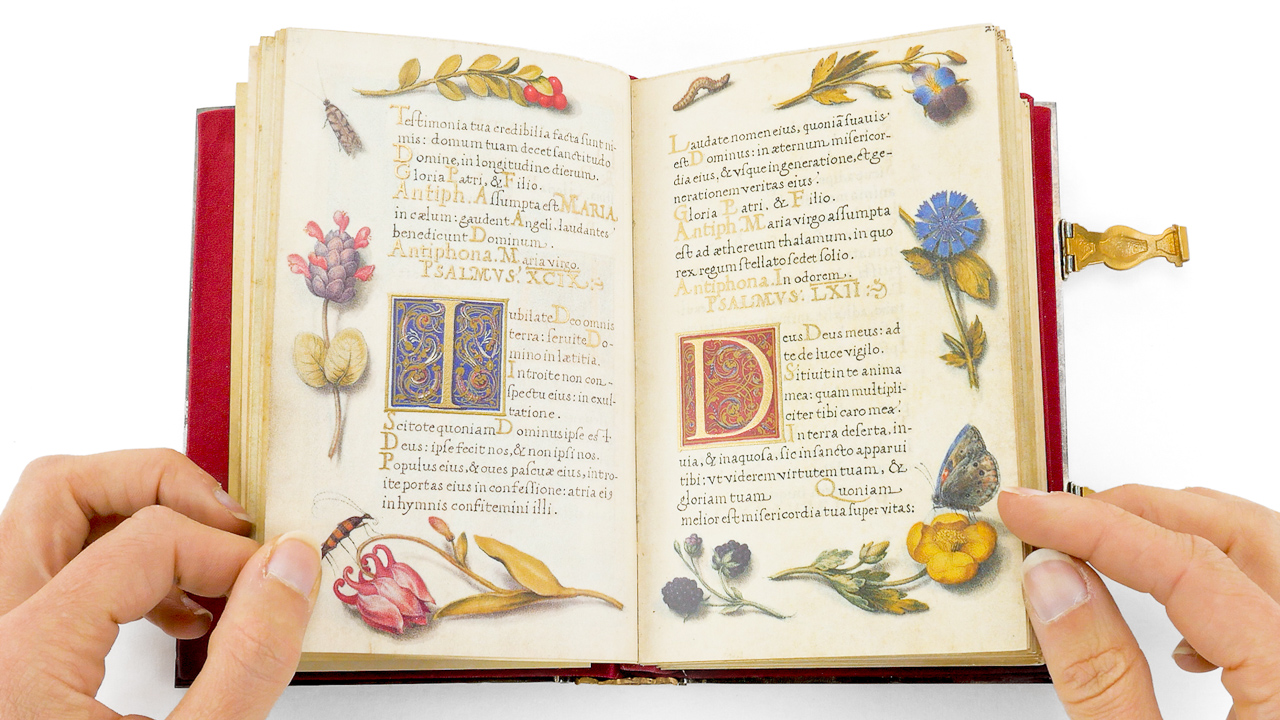 Testimonia tua credibilia facta sunt ni-
mis: domum tuam decet sanctitudo
Domine, in longitudine dierum.
Gloria Patri, & Filio.
Antiph. Assumpta est MARIA
in cælum: gaudent Angeli, laudantes
benedicunt Dominum.
Antiphona. Maria virgo.
PSALMVS. XCIX.
Iubilate Deo omnis
terra: seruite Do-
mino in lætitia.
Introite non con-
spectu eius: in exul-
tatione.
Scitote quoniam Dominus ipse est
Deus: ipse fecit nos, & non ipsi nos.
Populus eius, & oues pascuæ eius, intro-
ite portas eius in confessione: atria eis
in hymnis confitemini illi.
Laudate nomen eius, quoniā suauis
est Dominus: in æternum misericor-
dia eius, & vsque in generatione, & ge-
nerationem veritas eius.
Gloria Patri, & Filio.
Antiph. Maria virgo assumpta
est ad æthereum thalamum, in quo
rex regum stellato sedet solio.
Antiphona. In odorem.
PSALMVS. LXII:
Deus Deus meus: ad
te de luce vigilo.
Sitiuit in te anima
mea: quam multipli-
citer tibi caro mea.
In terra deserta, in-
uia, & inaquosa, sic in sancto apparui
tibi: vt viderem virtutem tuam, &
gloriam tuam Quoniam
melior est misericordia tua super vitas: